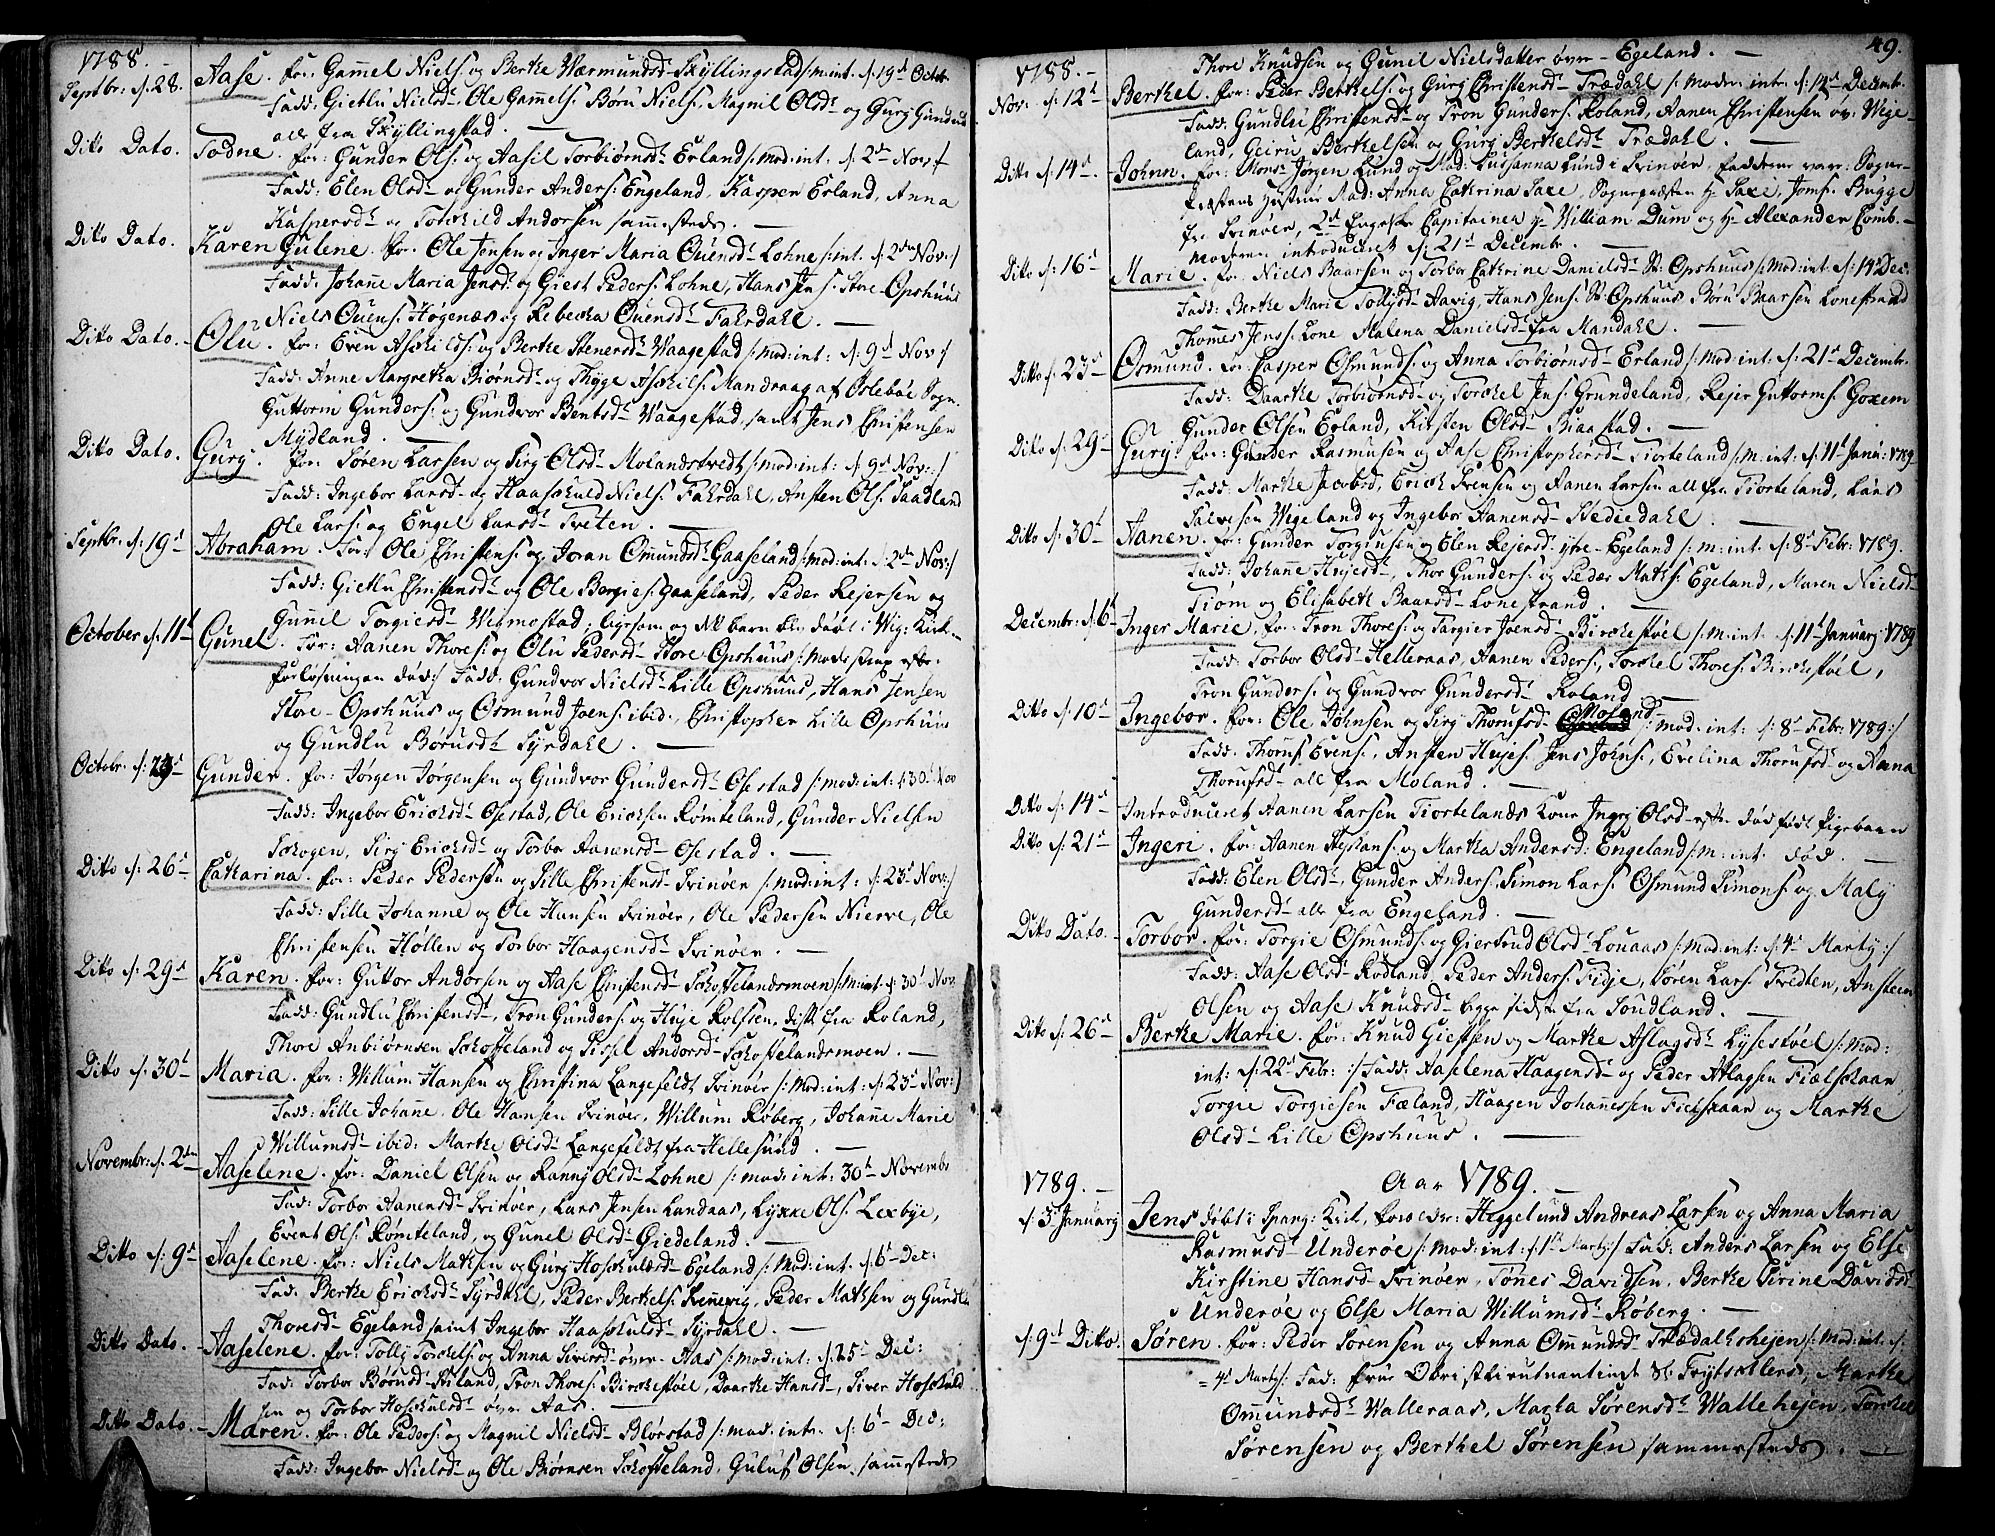 1788.
Septbr: d: 28. Aase. for: Gammel Niels: og Berte Wærmundsd: Skyllingstad /:m:int: d: 19d Octob:
Fadd: Gietlu Nielsd: Ole Gammels: Børu Niels: Magnil Olsd: og Gurg Gundersd
all fra Skyllingstad. —
Ditto Dato. Todne. for: Gunder Ols: og Aasil Torbiørnsd: Erland /:mod:int: d: 2d Nov:/
Fadd: Elen Olsd: og Gunder Anders: Engeland, Kasper Erland, Anna
Kaspersd: og Torkild Andorsen sammesteds. —
Ditto Dato. Karen Gulene. for: Ole Jensen og Inger Maria Ouensd: Lohne /:int. d: 2den Nov:/
Fadd: Johanne Maria Jensd: og Giest Peders: Lohne, Hans Jens: Store Opshuus
Niels Ouens: Høgenæs og Rebecka Ouensd: Fahrdahl. —
Ditto Dato. Olu. for: Even Askilds: og Berte Stenersd: Waagestad /:mod:int: d: 9d Nov:/
Fadd: Anne Margretha Biørnsd: og Thyge Askils: Mandraag af Oslebøe Sogn.
Guttorm Gunders: og Gundvor Bentsd: Waagestad, samt Jens Christensen
Mydland. —
Ditto Dato. Gurg. for: Søren Larsen og Sirg Olsd: Molandstvedt /:mod:int: d: 9d Nov:/
Fadd: Ingebor Larsd: og Haaskuld Niels: Fahrdahl, Ansten Ols: Saadland
Ole Lars: og Engel Larsd: Tveten. —
Septbr: d: 19d Abraham. for: Ole Christens: og Joran Omundsd: Gaaseland /:mod:int: d: 2den Nov:/
Fadd: Gietlu Christensd: og Ole Borgies: Gaaseland, Peder Rejersen og
Gunnel Torgiesd: Wegmostad; bygsom og NB barn blev døbt i Wig: Kirk.
October d: 11t Gunel. for: Aanen Thores: og Olu Pedersd: Store Opshuus /:mod: strax efter
forløsningen død:/ Fadd: Gundvor Nielsd: Lille Opshuus, Hans Jensen
Store Opshuus og Osmund Joens: ibid:, Christopher Lille Opshuus
og Gundlu Børusd: Syrdahl. —
Octobr: d: Gunder. for: Jørgen Jørgensen og Gundvor Gundersd: Osestad /:mod:int: d 30t Nov
Fadd: Ingebor Ericksd: Osestad, Ole Ericksen Rømteland, Gunder Nielsen
Schogen, Sirg Ericksd: og Torbor Aanensd: Osestad. —
Ditto d: 26d Catharina. for: Peder Pedersen og Sille Christensd: Svinøer /:mod:int: d: 23d Nov:/
Fadd: Sille Johanne og Ole Hansen Svinøer, Ole Pedersen Nierve, Ole
Christensen Høllen og Torbor Haagensd: Svinøer. —
Ditto d: 29d Karen. for: Guttor Andorsen og Aase Christensd: Schoffelandsmoen /:m:int: d: 30t Nov.
Fadd: Gundlu Christensd:, Tron Gunders: og Huje Rolfsen, disse fra Roland,
Thore Anbiørnsen Schofteland og Sissel Andorsd: Schoftelandsmoen. —
Ditto d: 30t Maria. for: Willum Hansen og Christina Langefeldt Svinøer /:mod:int: d: 23d Nov:/
Fadd: Sille Johanne, Ole Hansen Svinøer, Willum Røberg, Johanne Marie
Willumsd: ibid: Marthe Olsd: Langefeldt fra Hellesund. —
Novembr: d: 2den Aaselene. for: Daniel Olsen og Ranny Olsd: Lohne /:mod:int: 30t Novembr
Fad: Torbor Aanensd: Svinøer, Lars Jensen Landaas, Lykke Ols: Lexbye,
Event Ols: Rømteland, og Gunel Olsd: Giedeland. —
Ditto d: 9d Aaselene. for: Niels Mathsen og Gurg Hoskuldsd: Egeland /:Mod:int. d: 6t Dec:
Fad: Berthe Ericksd: Syrdahl, Peder Berthels: Svennevig, Peder Mathsen og Gundlu
Thoresd: Egeland samt Ingebor Haaskulsd: Syrdahl. —
Ditto Dato. Aaselene. for: Tolly Torkels: og Anna Siversd: øvre Aas /:mod:int: d: 25d Dec:
Fad: Torbor Børusd: Riland, Tron Thores: Birckestøel, Daarthe Hansd:, Siver Hoskuld
sen og Torbor Hoskulsd: øvre Aas. —
Ditto Dato. Maren. for: Ole Peders: og Magnil Nielsd: Blørstad /:mod:int: d: 6t Dec:
Fadd: Ingebor Nielsd: og Ole Biørnsen Schofteland, Guluf Olsen, sammesteds
49.
1788.
Thore Knudsen og Gunil Nielsdatter øvre Egeland. —
Nov: d: 12t Berthel. for: Peder Berthels: og Gurg Christensd: Trædahl /:Modr: int: d: 14d Decembr.
Fadd: Gundlu Christensd: og Tron Gunders: Roland, Aanen Christensen øv: Wige-
land, Geiru Berthelsen og Gurg Berthelsd: Trædahl. —
Ditto d: 14d. Johnn. for: Mons: Jørgen Lund og Mad: Susanna Lund i Svinøer, fadderne vare: Sogne-
Præstens hustrue Mad: Anna Cathrina Saxe, Sognepræsten Hr Saxe, Jomf: Bugge
fra Svinøer, 2de Engelske Capitainer Hr William Dum og Hr Alexander Comb.
Moderen introduceret d: 21d Decembr. —
Ditto d: 16d Marie. for: Niels Baarsen og Torbor Cathrine Danielsd: St: Opshuus /:mod:int: d: 14 Dec:
Fadd: Berthe Marie Tollifsd: Aavig, Hans Jens: St: Opshuus Børu Baarsen Lonestrand
Thomes Jens: Lone Malena Danielsd: fra Mandahl. —
Ditto d: 23d Osmund. for: Casper Osmunds: og Anna Torbiørnsd: Erland /:Mod:int: d: 21d Decembr.
Fadd: Daarthe Torbiørnsd: og Torckel Jens: Grundeland, Rejer Guttorms: Goxem
Gunder Olsen Erland, Kirsten Olsd: Baastad. —
Ditto d: 29d Gurg. for: Gunder Rasmusen og Aase Christophersd: Tiorteland /:m:int: d: 11t Janu: 1789
Fadd: Marthe Jacobsd, Erick Svensen og Aanen Larsen all fra Tiorteland, Lars
Salvesen Wigeland og Ingebor Aanensd: Stediedahl. —
Ditto d: 30t Aanen. for: Gunder Torgiusen og Elen Rejersd: ytre Egeland /:m:int: d: 8d Febr: 1789.
Fadd: Johanne Hujesd:, Thor Gunders: og Peder Maths: Egeland, Maren Nielsd:
Tiom og Elisabeth Baarsd: Lonestrand. —
Decembr: d: 6t Inger Marie. for: Tron Thores: og Targier Joensd: Birckestøel /:m:int: d: 11t January 1789
Fadd: Torbor Olsd: Helleraas, Aanen Peders:, Torckel Thores: Birckestøel,
Tron Gunders: og Gundvor Gundersd: Roland —
Ditto d: 10d Ingebor. for: Ole Johnsen og Sirg Thorufsd: Moland /:mod:int: d: 8d Febr: 1789:/
Fadd: Thoruf Evens:, Ansten Hujes: Jens Johns:, Evelina Thorufsd: og Anna
Thorufsd: all fra Moland. —
Ditto d: 14d Introduceret Aanen Larsen Tiortelands kone Ingrg Olsd: efter død født Pigebarn
Ditto d: 21d Ingeri. for: Aanen Stephans: og Martha Andersd: Engeland /:m:int: død. —
Fadd: Elen Olsd:, Gunder Anders: Simon Lars: Osmund Simons: og Maly
Gundersd: alle fra Engeland. —
Ditto Dato. Torbor. for: Torgie Osmunds: og Giertrud Olsd: Louaas /:mod:int: d: 4d Marty:/
Fadd: Aase Olsd: Rødland, Peder Anders: Fidje, Søren Lars: Tvedten, Ansteen
Olsen og Aase Knudsd: begge sidste fra Soudland. —
Ditto d: 26d Berthe Marie. for: Knud Giestsen og Marthe Aslagsd: Lysestøel /:Mod:
int: d: 22d Febr: :/ Fadd: Aaselena Haagensd: og Peder Atlagsen Fiælskaar
Torgie Torgiesen Fæland, Haagen Johannessen Fielskaar og Marthe
Olsd: Lille Opshuus. —
1789. — Aar 1789. —
d: 3d January Jens døbt i Spang: Kirk, forelder: Heggelund Andreas Larsen og Anna Maria
Rasmusd: Underøe /:mod:int: d 1st Marty:/ Fad: Anders Larsen og Else
Kirstine Hansd: Svinøer, Tønes Davidsen, Berthe Serine Davidsd:
Underøe og Else Maria Willumsd: Røberg. —
d: 9d Ditto. Søren. for: Peder Sørensen og Anna Omundsd: Trædahlshejen /:mod:int: d:
4d Marty: Fad: frue Obristlieutnantinde Trytzetlers, Marthe
Omundsd: Walleraas, Martha Sørensd: Wallehejen, Torckel
Sørensen og Berthel Sørensen sammesteds. —